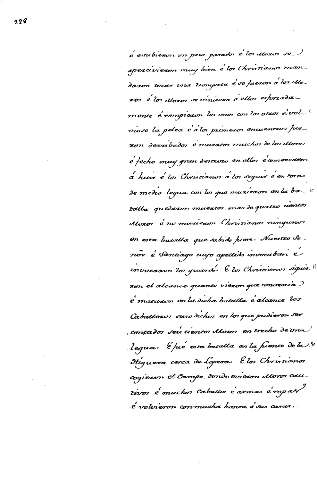 é estubieron un poco parado é los Moros se
apercivieron muy bien é los Christianos man-
daron tocar una trompeta é se fueron á los Mo-
ros é los Moros se vinieron á ellos esforzada-
mente é rompieron los unos con los otros é vol-
viose la pelea é á los primeros encuentros fue-
ron derrivados é muertos muchos de los Moros
é fecho muy gran destrozo en ellos é comenzaron
á huir é los Christianos á los seguir é en torno
de media legua con los que murieron en la ba-
talla quedaron muertos mas de quatro cientos
Moros é no murieron Christianos ningunos
en esta batalla que sabido fuese. Nuestro Se-
ñor é Santiago cuyo apellido invocaban é
invocaron los guardó. E los Christianos siguie-
ron el alcance quanto vieron que convenia
é murieron en la dicha batalla é alcance los
Caballeros susodichos en los que pudieron ser
contados seiscientos Moros en trecho de una
legua. E fué esta batalla en la fuente de la
Higuera cerca de Lopera. E los Christianos
cogieron el Campo donde ovieron Moros cau-
tivos é muchos Caballos é armas é ropas
é volvieron con mucha honra é sus casas.